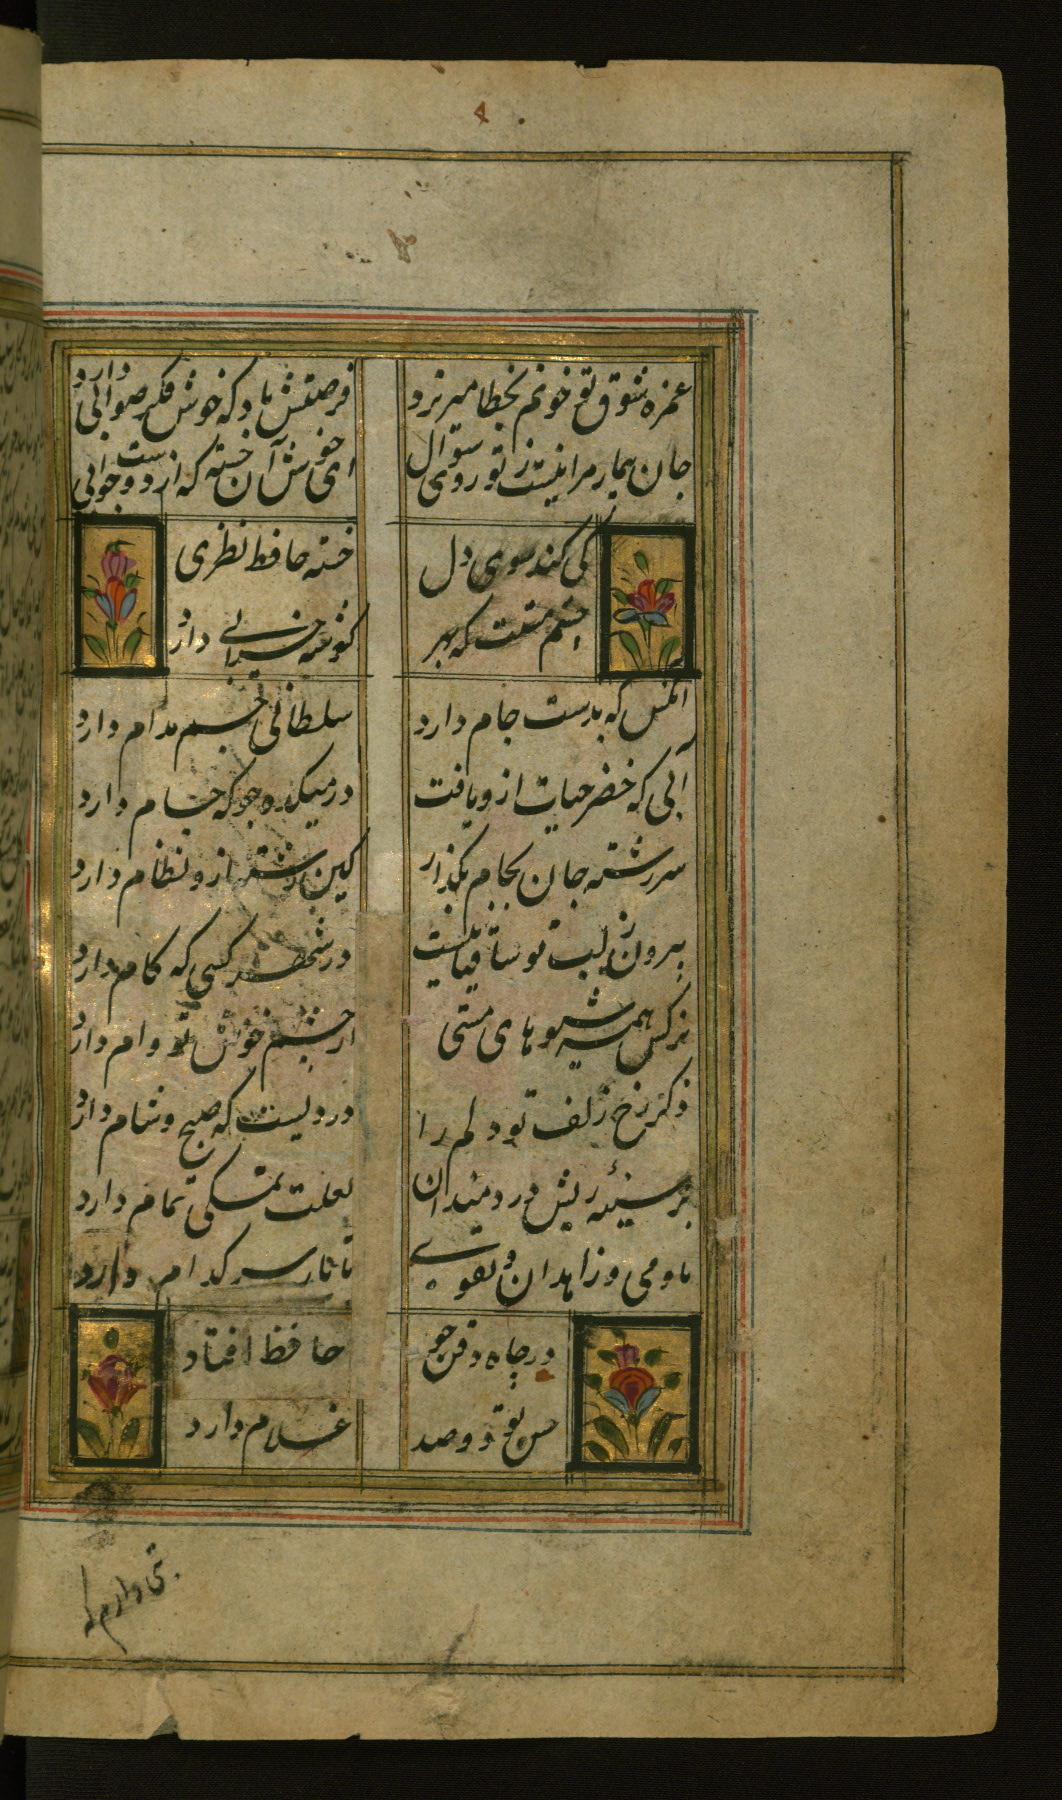 غمزه شوق تو خونم بخطا میریزد
فرصتش باد که خوش فکر صوابی دارد
جان بیمار مرا نیست ز تو روی سوال
ای خوش آن خسته که از دوست جوابی دارد
کی کند سوی دل
خسته حافظ نظری
چشم مستت که بهر
گوشه خرابی دارد
آنکس که بدست جام دارد
سلطانی جم مدام دارد
آبی که خضر حیات ازو یافت
در میکده جو که جام دارد
سررشته جان بجام بگذار
کین رشته ازو نظام دارد
بیرون ز لب تو ساقیا نیست
در کسی که کام دارد
نرگس همه شیوهای مستی
از چشم خوش تو وام دارد
ذکر رخ زلف تو دلم را
دردیست که صبح و شام دارد
بر سینهٔ ریش دردمندان
لعلت نمکی تمام دارد
ما و می و زاهدان و تقوی
تا یار سر کدام دارد
در چاه ذقن چو
حافظ افتاد
حسن تو دو صد
غلام دارد